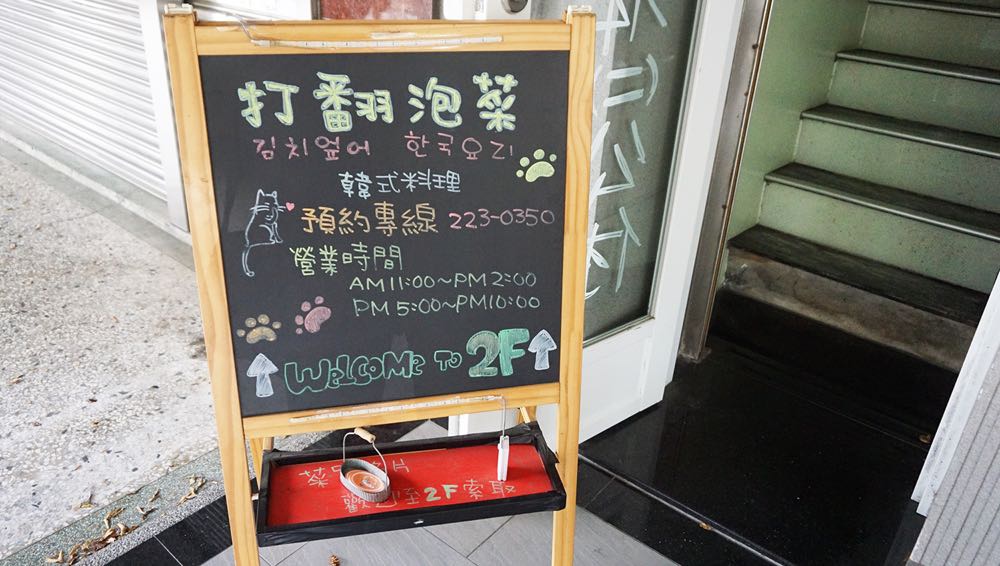 打翻泡菜
김치엎어 한국요리
韓式料理
預約專線 223-0350
營業時間
AM11:00~PM2:00
PM5:00~PM10:00
WELCOME TO 2F
菜 片
歡 至2F索取